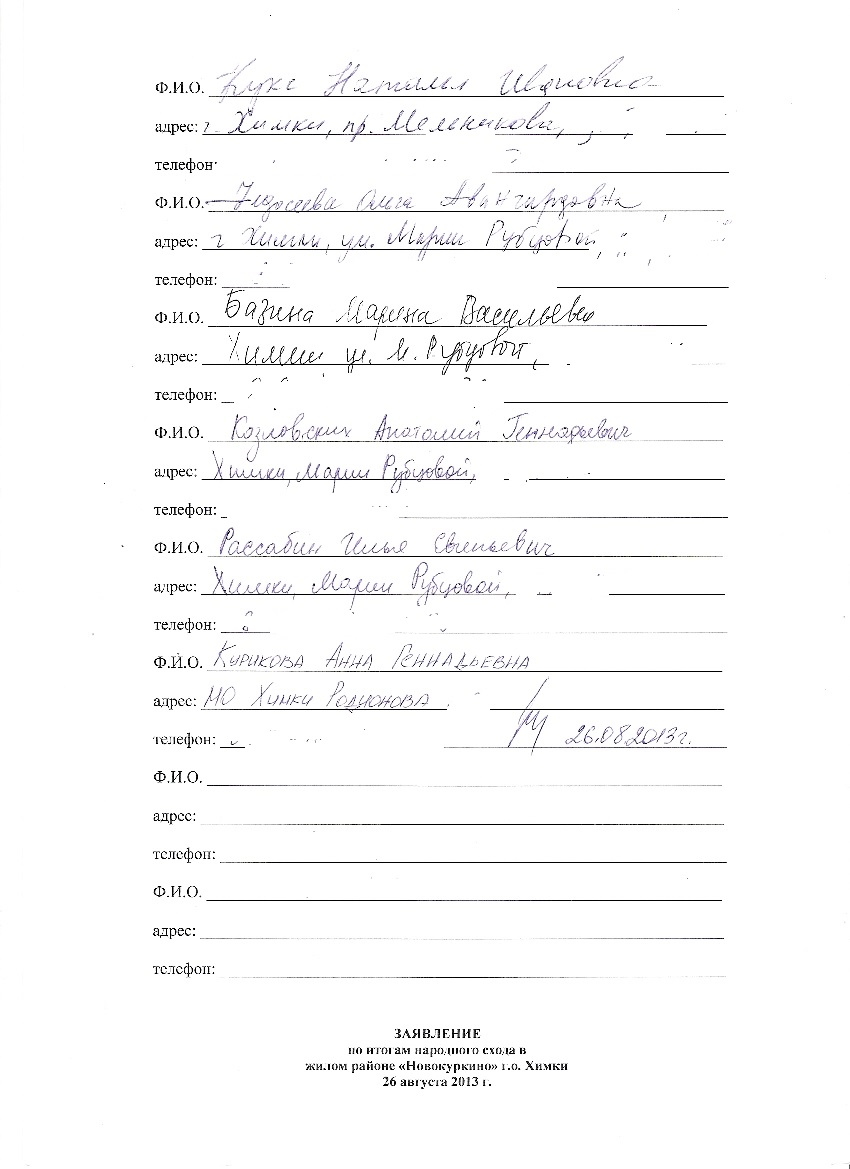 Ф.И.О. Кукс Наталья Ивановна
адрес: г. Химки, пр. Мельникова,
телефон:
Ф.И.О. Федосеева Ольга Авангардовна
адрес: г Химки, ул. Марии Рубцовой,
телефон:
Ф.И.О. Базина Марина Васильевна
адрес: Химки ул. М. Рубцовой,
телефон:
Ф.И.О. Козловских Анатолий Геннадьевич
адрес: Химки, Марии Рубцовой,
телефон:
Ф.И.О. Рассабин Илья Евгеньевич
адрес: Химки, Марии Рубцовой,
телефон:
Ф.И.О. Курикова Анна Геннадьевна
адрес: МО Химки Родионова
телефон: 26.08.2013г.
Ф.И.О.
адрес:
телефон:
Ф.И.О.
адрес:
телефон:
ЗАЯВЛЕНИЕ
по итогам народного схода в
жилом районе «Новокуркино» г.о. Химки
26 августа 2013 г.